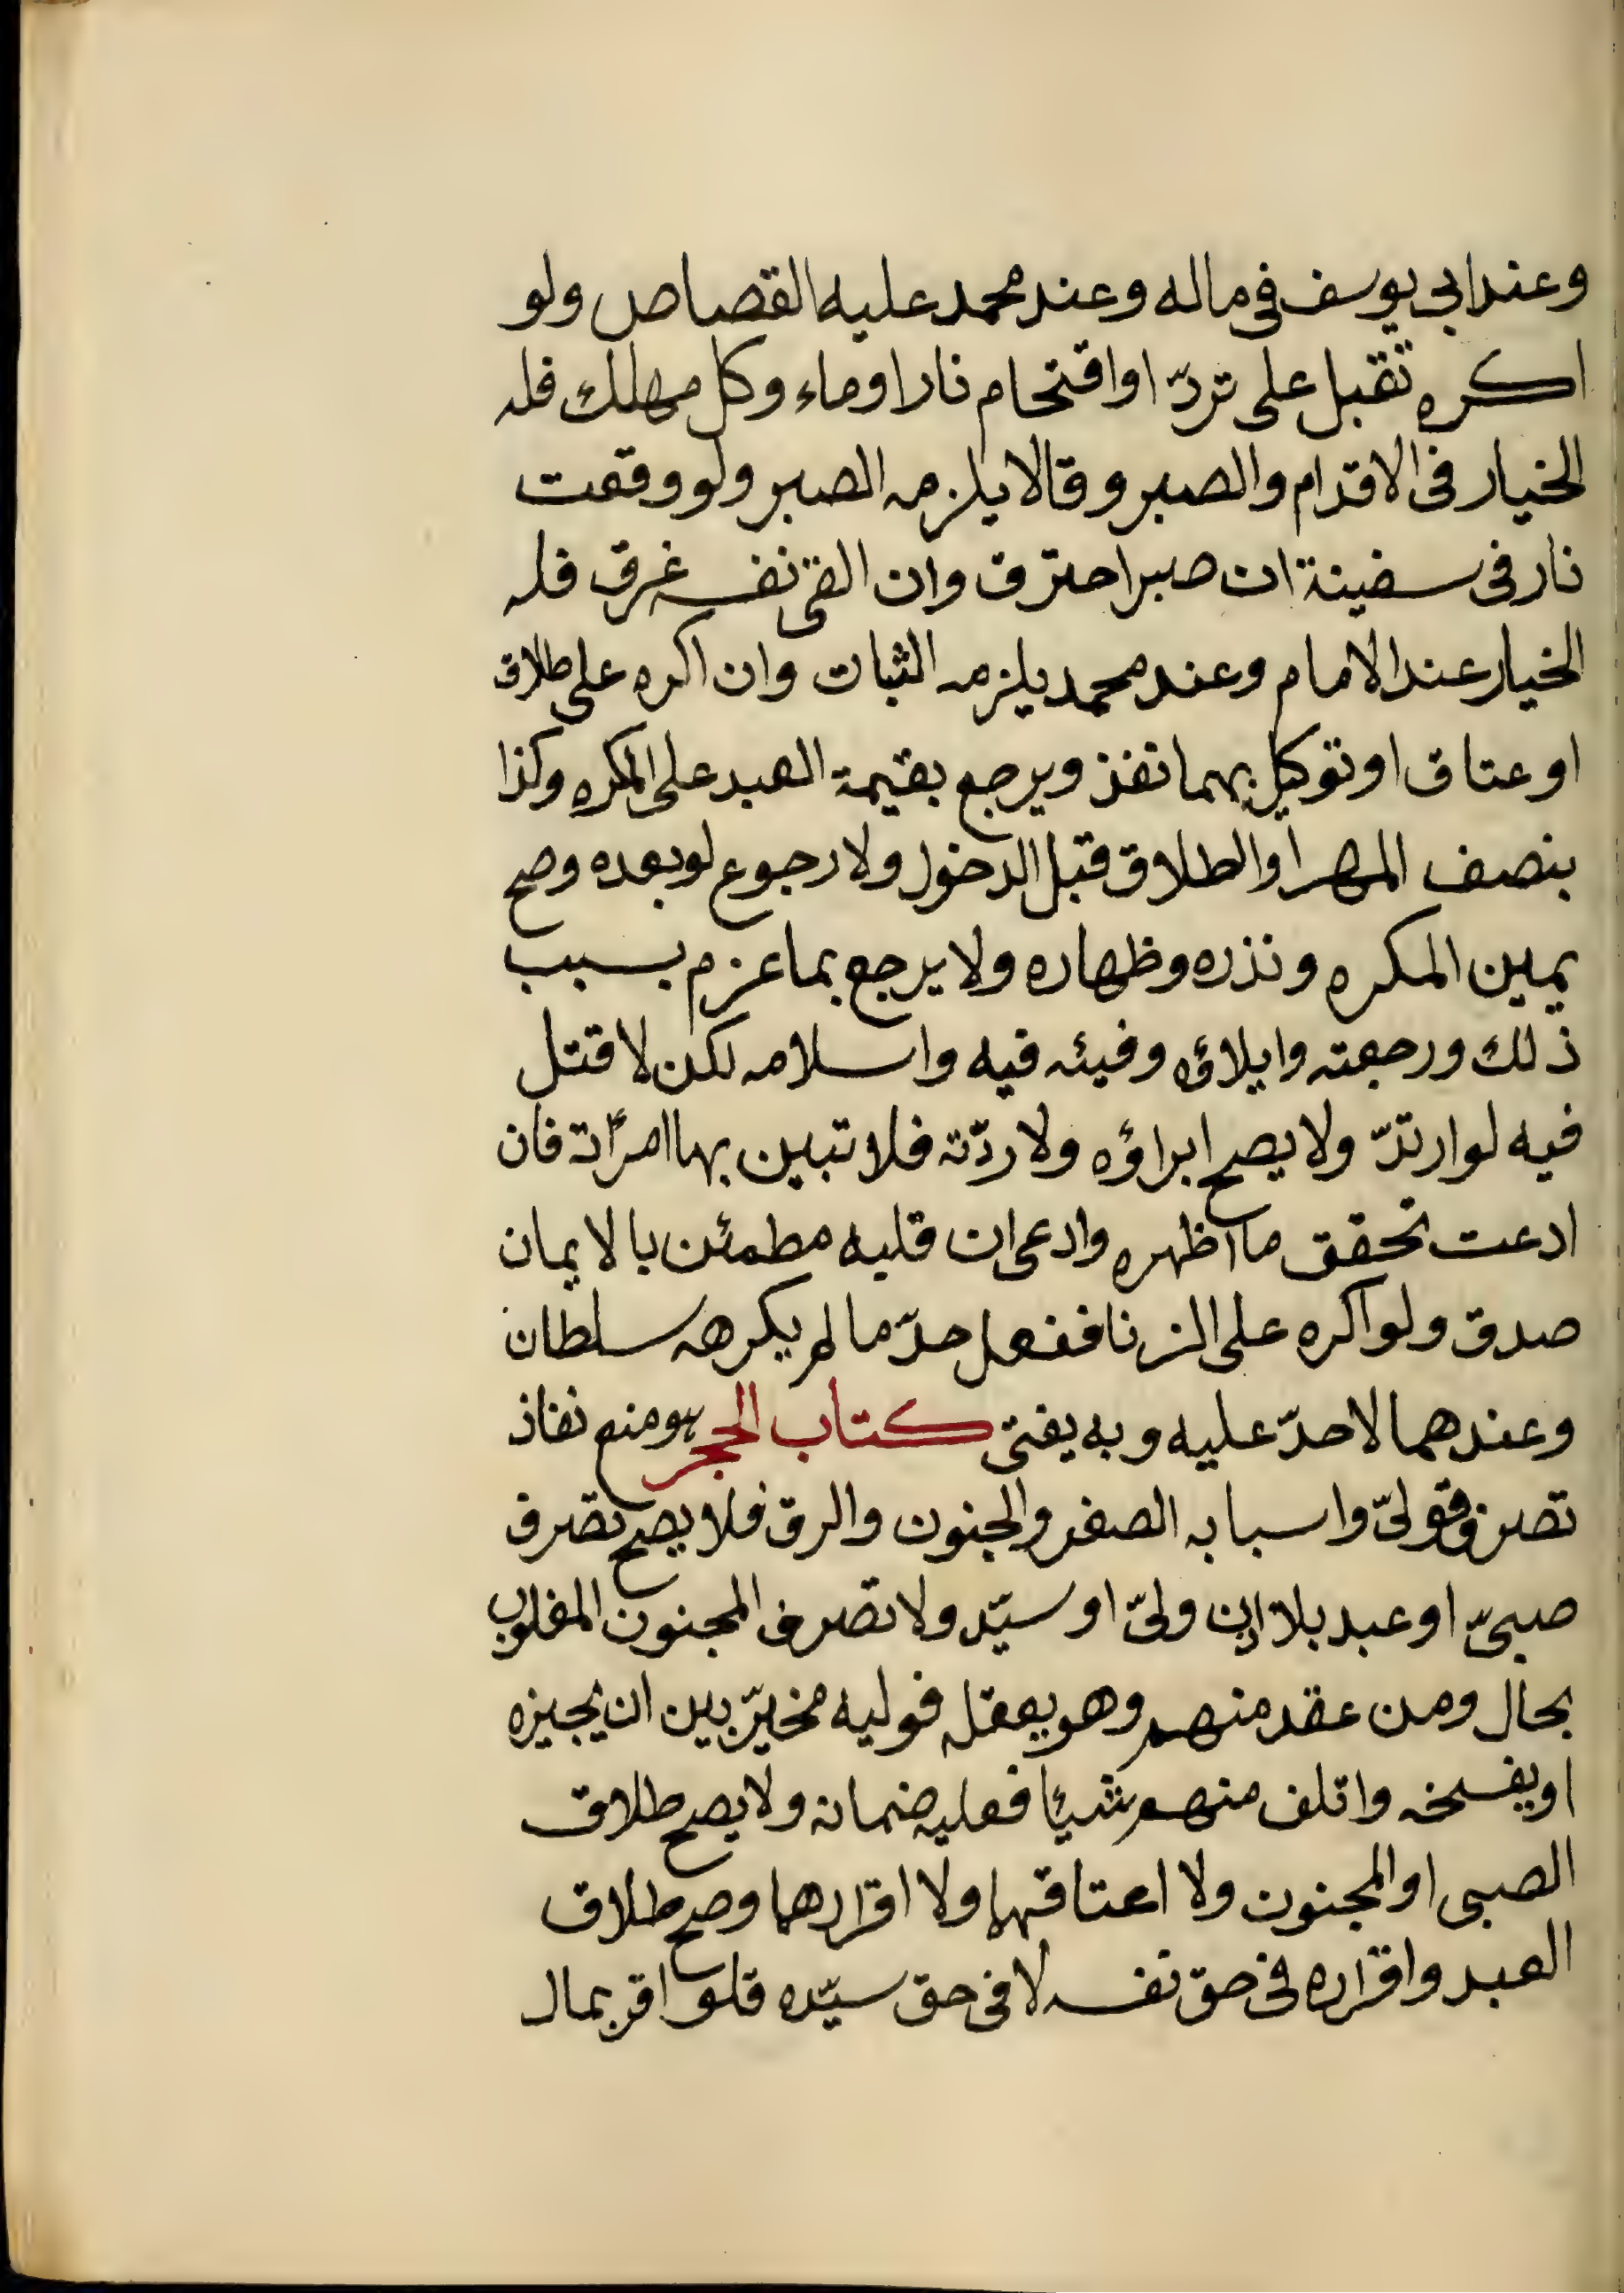 وعند ابى يوسف فى ماله وعند محمد عليه القصاص ولو
اكره تقبل على تردّ او اقتحام نار او ماء وكل مهلك فله
الخيار فى الاقدام والصبر وقالا يلزمه الصبر ولو وقعت
نار فى سفينة ان صبر احترق وان القى نفسه غرق فله
الخيار عند الامام وعند محمد يلزمه الثبات وان اكره على طلاق
او عتاق او توكيل بهما نفذ ويرجع بقيمة العبد على المكره وكذا
بنصف المهر او الطلاق قبل الدخول ولا رجوع لو بعده وصح
يمين المكره ونذره وظهاره ولا يرجع بما عزم بسبب
ذلك ورجعته وايلاؤه وفيئه فيه واسلامه لكن لا قتل
فيه لو ارتدّ ولا يصح ابراؤه ولا ردّته فلا تبين بها امرأته فان
ادعت تحقق ما اظهره وادعى ان قلبه مطمئن بالايمان
صدق ولو اكره على الزنا ففعل حدّ ما لم يكرهه سلطان
وعندهما لا حدّ عليه وبه يفتى كتاب الحجر هو منع نفاذ
تصرف قولىّ واسبابه الصغر والجنون والرق فلا يصح تصرف
صبىّ او عبد بلا اذن ولىّ او سيّد ولا تصرف المجنون المغلوب
بحال ومن عقد منهم وهو يعقله فوليه مخيّر بين ان يجيزه
او يفسخه واتلف منهم شيئا فعليه ضمانه ولا يصح طلاق
الصبى او المجنون ولا اعتاقهما ولا اقرارهما وصح طلاق
العبد واقراره فى حق نفسه لا فى حق سيّده فلو اقر بمال